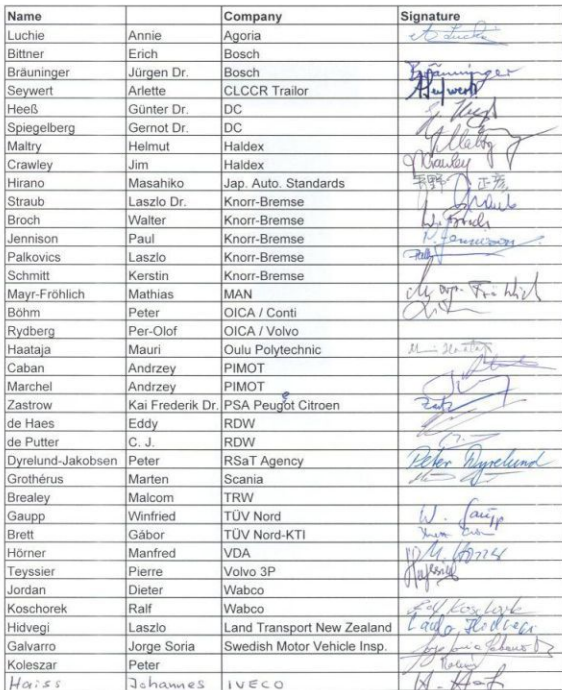 Name Company Signature
Luchie Annie Agoria A Luchie
Bittner Erich Bosch
Bräuninger Jürgen Dr. Bosch Bräuninger
Seywert Arlette CLCCR Trailor ASeywert
Heeß Günter Dr. DC
Spiegelberg Gernot Dr. DC
Maltry Helmut Haldex
Crawley Jim Haldex Crawley
Hirano Masahiko Jap. Auto. Standards 平野 正彦
Straub Laszlo Dr. Knorr-Bremse
Broch Walter Knorr-Bremse W. Broch
Jennison Paul Knorr-Bremse P. Jennison
Palkovics Laszlo Knorr-Bremse
Schmitt Kerstin Knorr-Bremse
Mayr-Fröhlich Mathias MAN Mayr-Fröhlich
Böhm Peter OICA / Conti
Rydberg Per-Olof OICA / Volvo
Haataja Mauri Oulu Polytechnic
Caban Andrzey PIMOT
Marchel Andrzey PIMOT
Zastrow Kai Frederik Dr. PSA Peugeot Citroen
de Haes Eddy RDW
de Putter C. J. RDW
Dyrelund-Jakobsen Peter RSaT Agency Peter Dyrelund
Grothérus Marten Scania
Brealey Malcom TRW
Gaupp Winfried TÜV Nord W. Gaupp
Brett Gábor TÜV Nord-KTI
Hörner Manfred VDA M. Hörner
Teyssier Pierre Volvo 3P
Jordan Dieter Wabco
Koschorek Ralf Wabco Ralf Koschorek
Hidvegi Laszlo Land Transport New Zealand Laszlo Hidvegi
Galvarro Jorge Soria Swedish Motor Vehicle Insp.
Koleszar Peter
Haiss Johannes IVECO